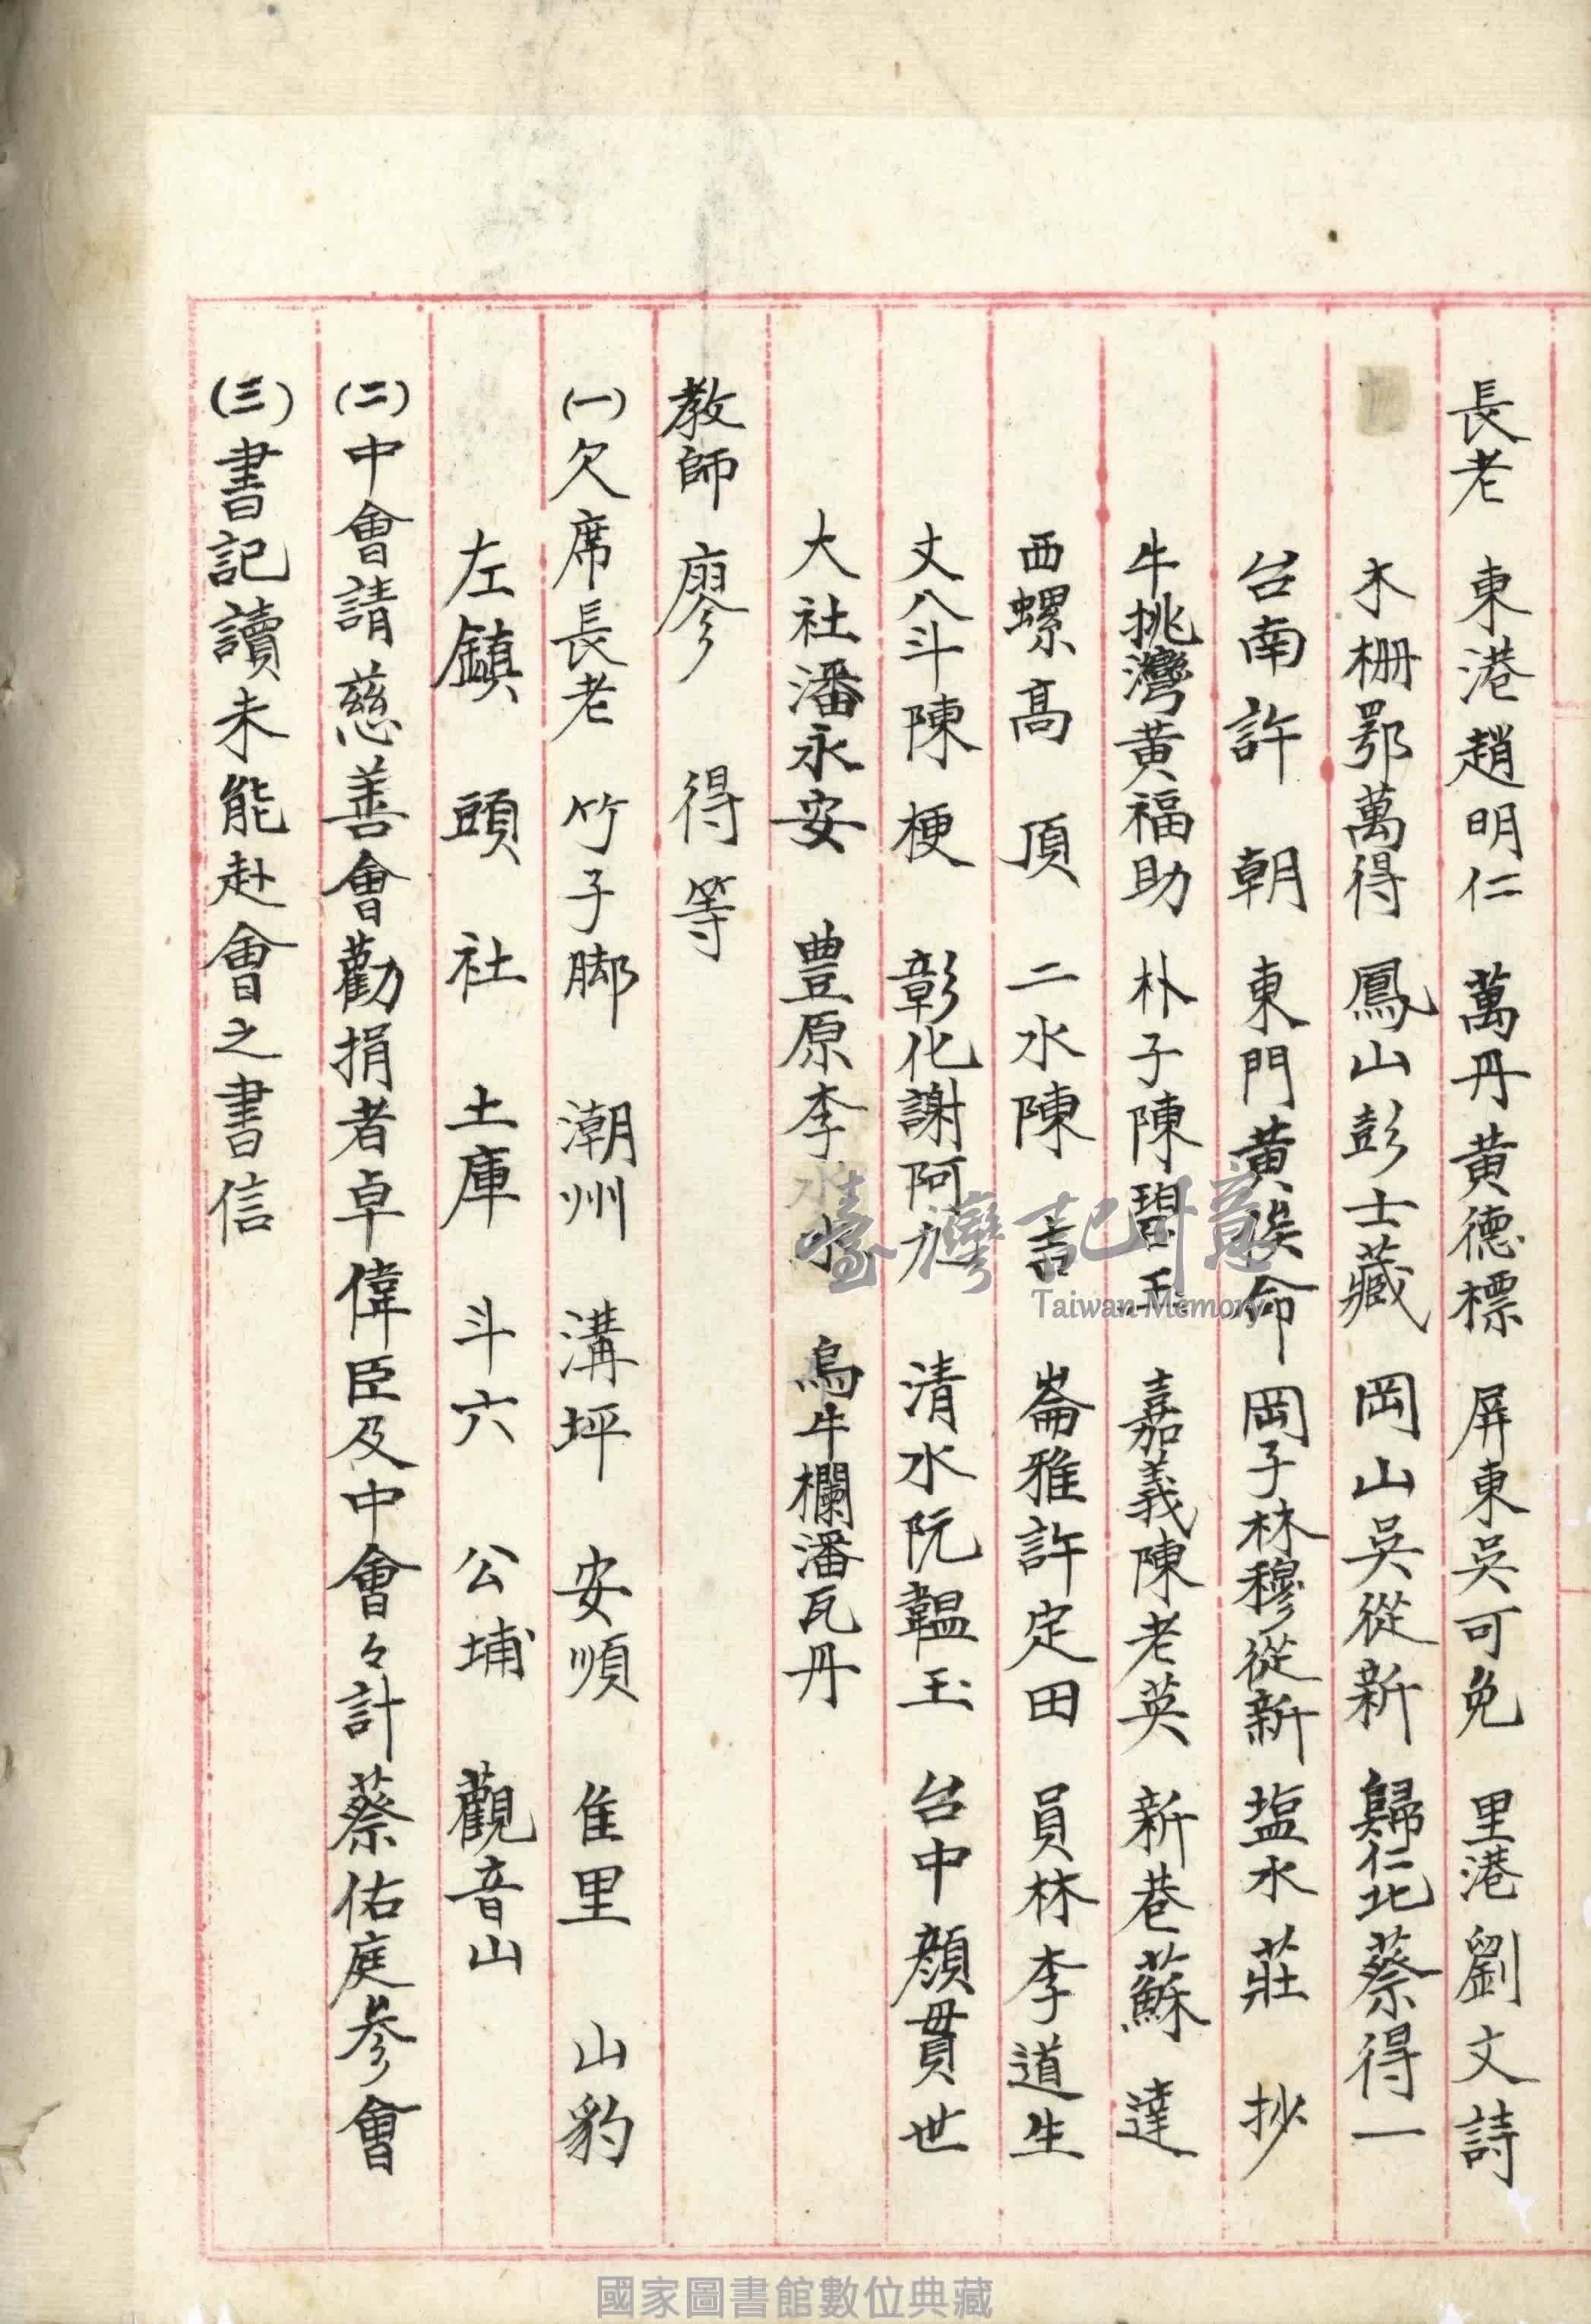 長老 東港趙明仁 萬丹黄德標 屏東吳可免 里港劉文詩
木柵鄂萬得 鳳山彭士藏 岡山吳從新 歸仁北蔡得一
台南許朝 東門黄俟命 岡子林穆從新 塩水莊抄
牛挑灣黄福助 朴子陳碧玉 嘉義陳老英 新巷蘇達
西螺高頂 二水陳 崙雅許定田 員林李道生
丈八斗陳梗 彰化謝阿 清水阮韞玉 台中顔貫世
大社潘永安 豊原李水 烏牛欄潘瓦丹
教師 廖得等
(一)欠席長老 竹子脚 潮州 溝坪 安順 隹里 山豹
左鎮 頭社 土庫 斗六 公埔 觀音山
(二)中會請慈善會勸捐者卓偉臣及中會々計蔡佑庭參會
(三)書記讀未能赴會之書信
臺灣記憶
Taiwan Memory
國家圖書館數位典藏